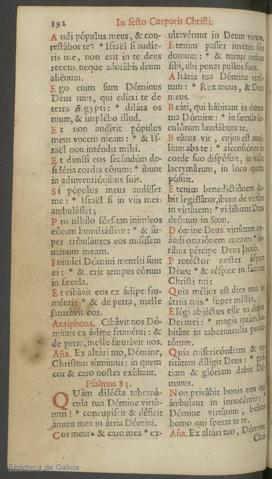 192 In festo Corporis Christi.
Audi pópulus meus, & con-
testábor te: * Israël si audie-
ris me, non erit in te deus
recens, neque adorábis deum
aliénum.
Ego enim sum Dóminus
Deus tuus, qui edúxi te de
terra Ægypti: * diláta os
tuum, & implébo illud.
Et non audívit pópulus
meus vocem meam: * & Is-
raël non inténdit mihi.
Et dimísi eos secúndum de-
sidéria cordis eórum: * ibunt
in adinventiónibus suis.
Si pópulus meus audísset
me: * Israël si in viis meis
ambulásset;
Pro níhilo fórsitan inimícos
eórum humiliássem: * & su-
per tribulántes eos misíssem
manum meam.
Inimíci Dómini mentíti sunt
ei: * & erit tempus eórum
in sæcula.
Et cibávit eos ex ádipe fru-
ménti: * & de petra, melle
saturávit eos.
Antiphona. Cibávit nos Dó-
minus ex ádipe fruménti: &
de petra, melle saturávit nos.
Aña. Ex altári tuo, Dómine,
Christum súmimus: in quem
cor & caro nostra exúltant.
Psalmus 83.
Quàm dilécta taberná-
cula tua Dómine virtú-
tum! * concupíscit & déficit
ánima mea in átria Dómini.
Cor meum * & caro mea * ex-
ultavérunt in Deum vivum.
Etenim passer invénit sibi
domum: * & turtur nidum
sibi, ubi ponat pullos suos.
Altária tua Dómine virtú-
tum: * Rex meus, & Deus
meus.
Beáti, qui hábitant in domo
tua Dómine: * in sæcula sæ-
culórum laudábunt te.
Beátus vir, cujus est auxí-
lium abs te: * ascensiónes in
corde suo dispósuit, in valle
lacrymárum, in loco quem
pósuit.
Etenim benedictiónem da-
bit legislátor, ibunt de virtúte
in virtútem: * vidébitur Deus
deórum in Sion.
Dómine Deus virtútum ex-
áudi oratiónem meam: * áu-
ribus pércipe Deus Jacob.
Protéctor noster áspice
Deus: * & réspice in fáciem
Christi tui:
Quia mélior est dies una in
átriis tuis * super míllia.
Elégi abjéctus esse in domo
Dei mei: * magis quàm ha-
bitáre in tabernáculis pecca-
tórum.
Quia misericórdiam & ve-
ritátem díligit Deus: * gra-
tiam & glóriam dabit Dó-
minus.
Non privábit bonis eos qui
ámbulant in innocéntia: *
Dómine virtútum, beátus
homo qui sperat in te.
Aña. Ex altári tuo, Dómine,
Biblioteca de Galicia